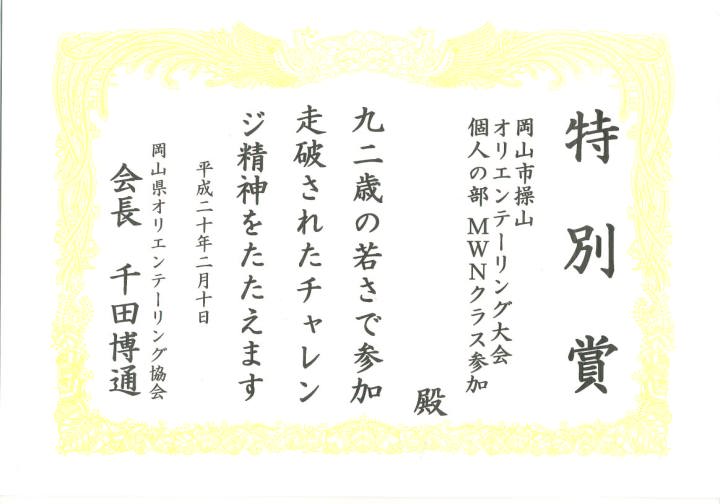 特別賞
岡山市操山
オリエンテーリング大会
個人の部 MWNクラス参加
殿
九二歳の若さで参加
走破されたチャレン
ジ精神をたたえます
平成二十年二月十日
岡山県オリエンテーリング協会
会長 千田博通